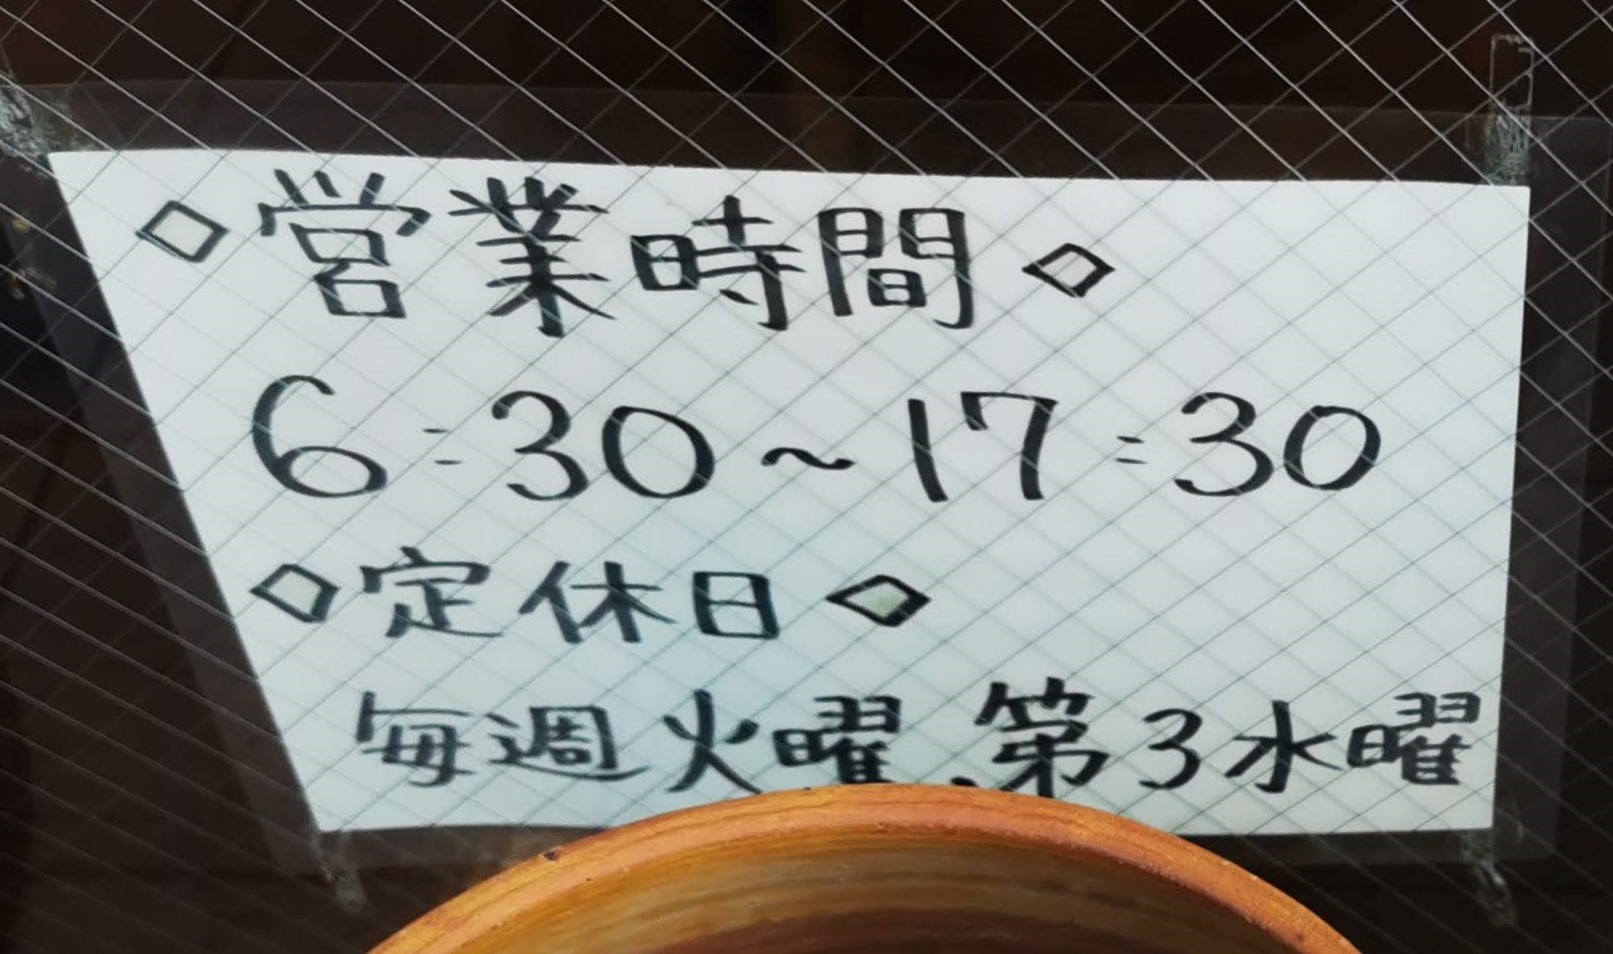 ◇営業時間◇
6:30~17:30
◇定休日◇
毎週火曜、第3水曜